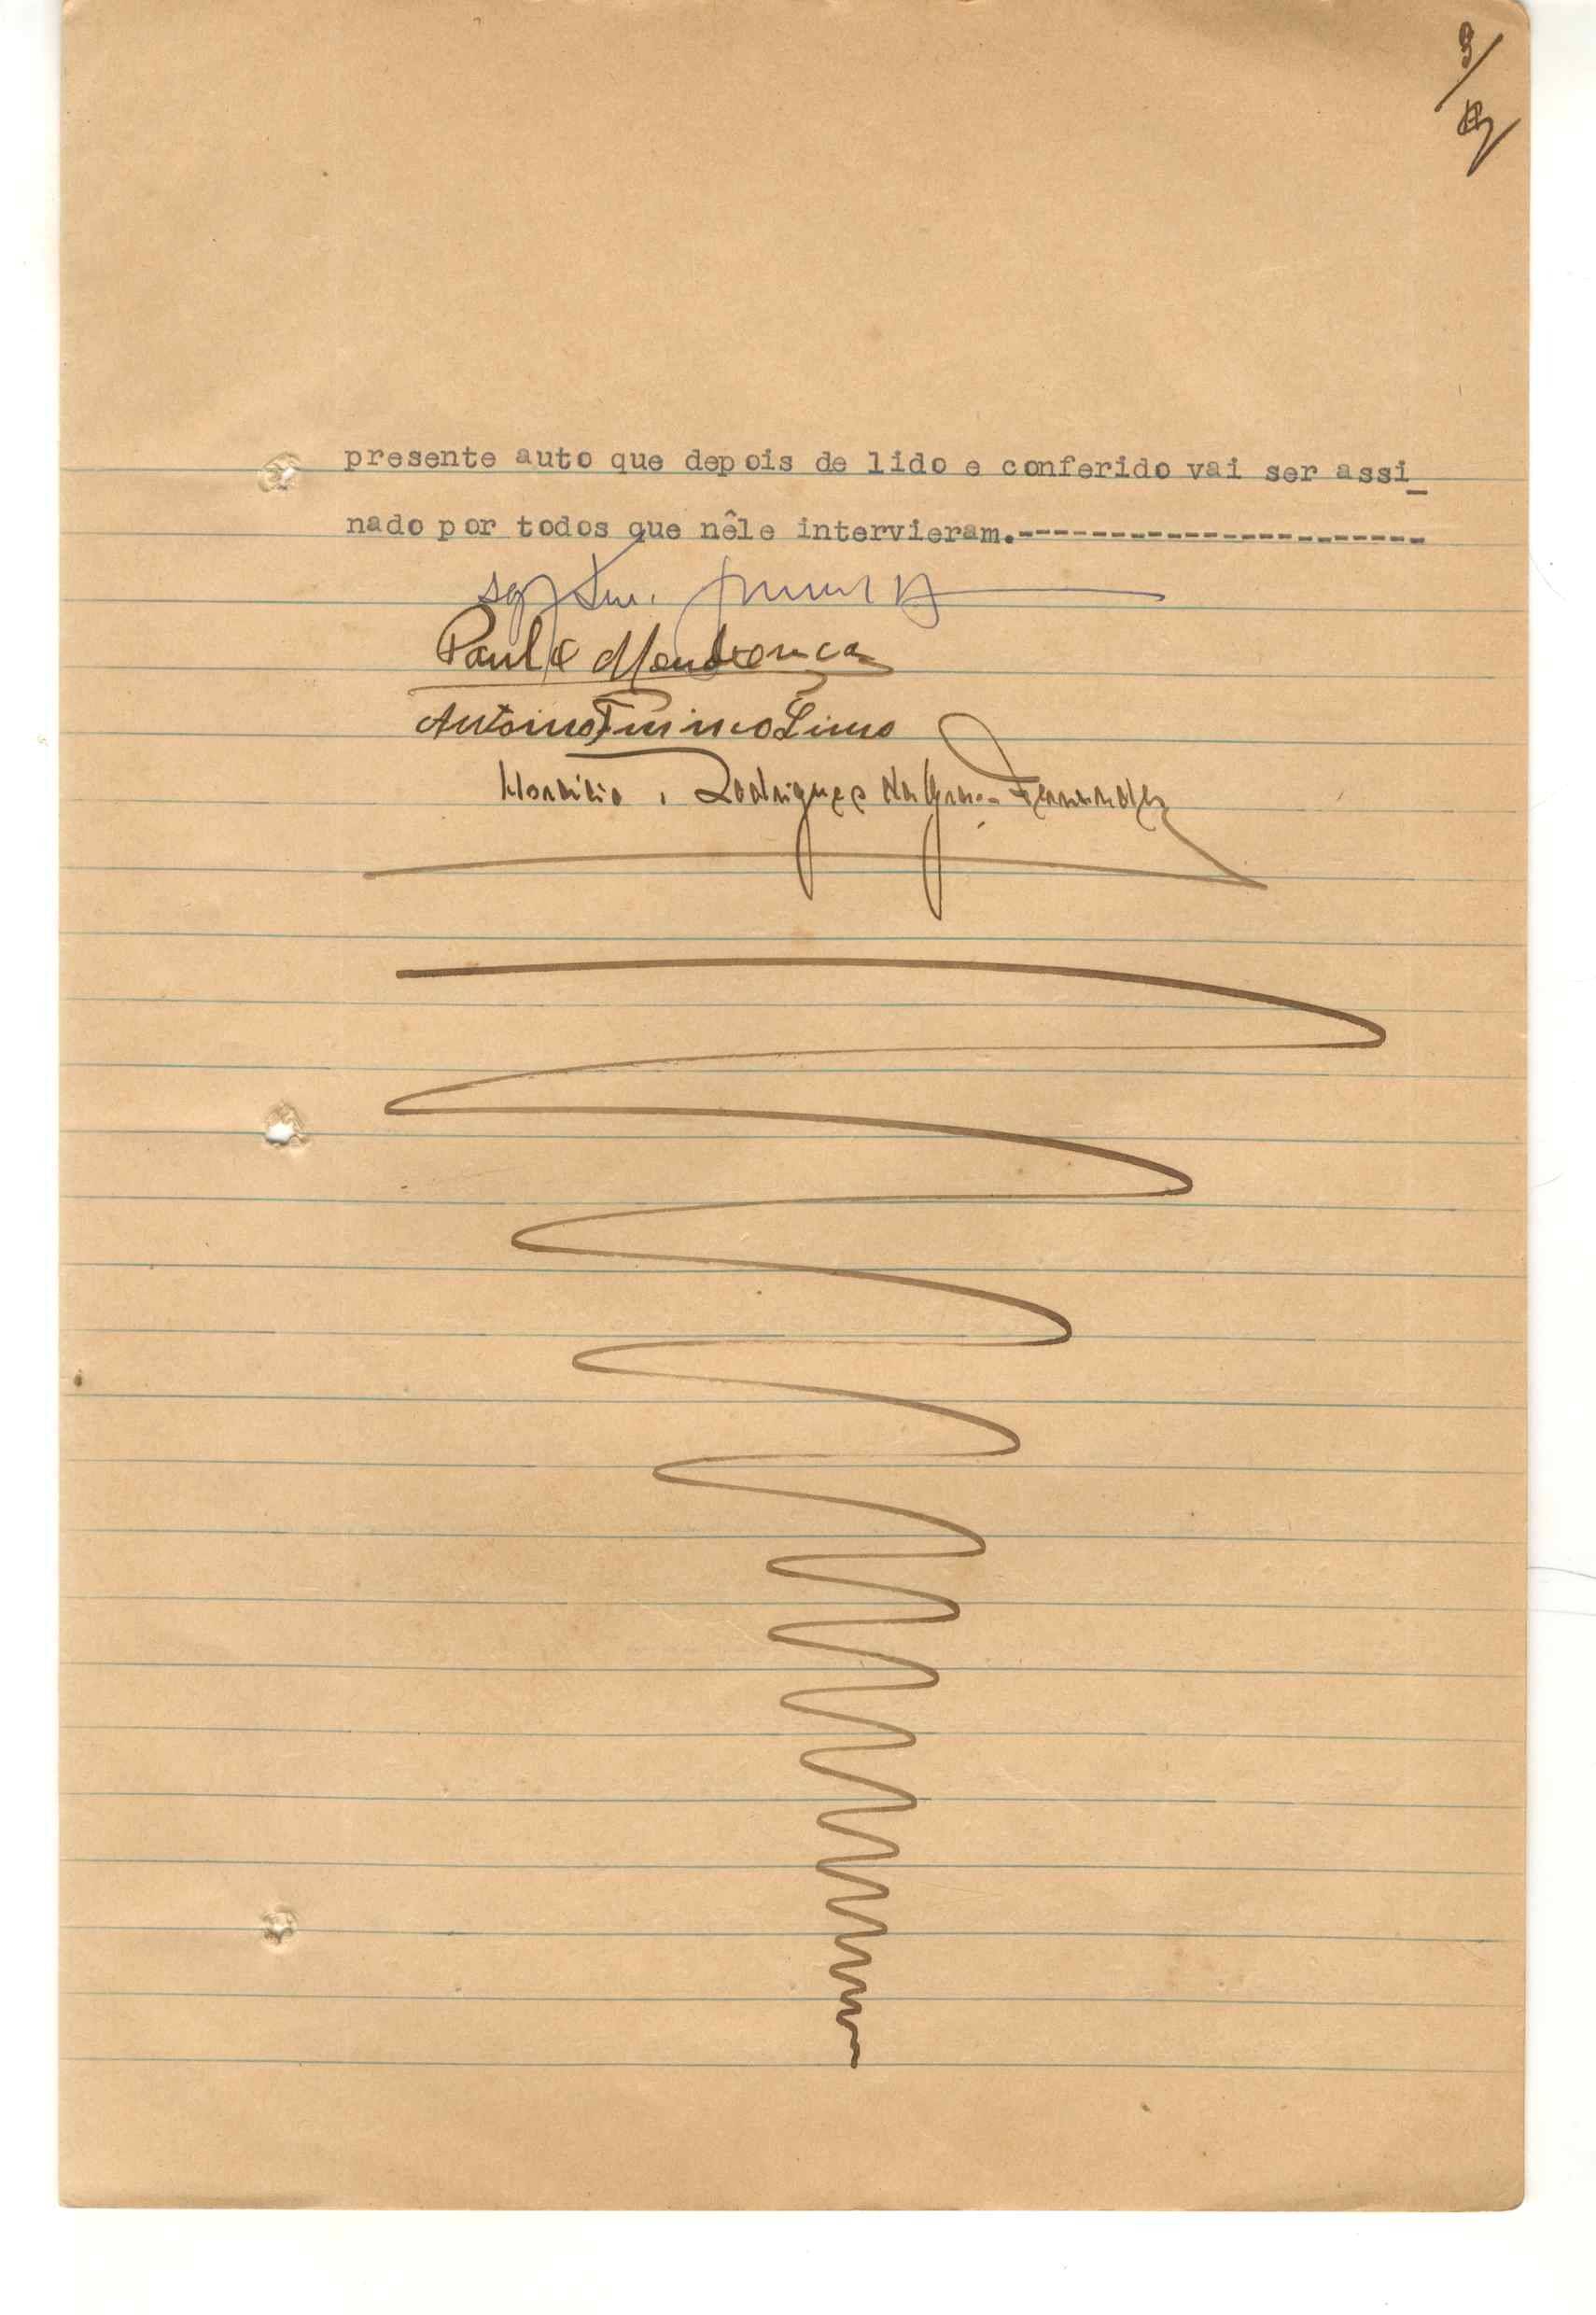 9
presente auto que depois de lido e conferido vai ser assi_
nado por todos que nêle intervieram.-----------------------
Paulo Mendonça
Antonio Lima
Rodrigues Fernandes